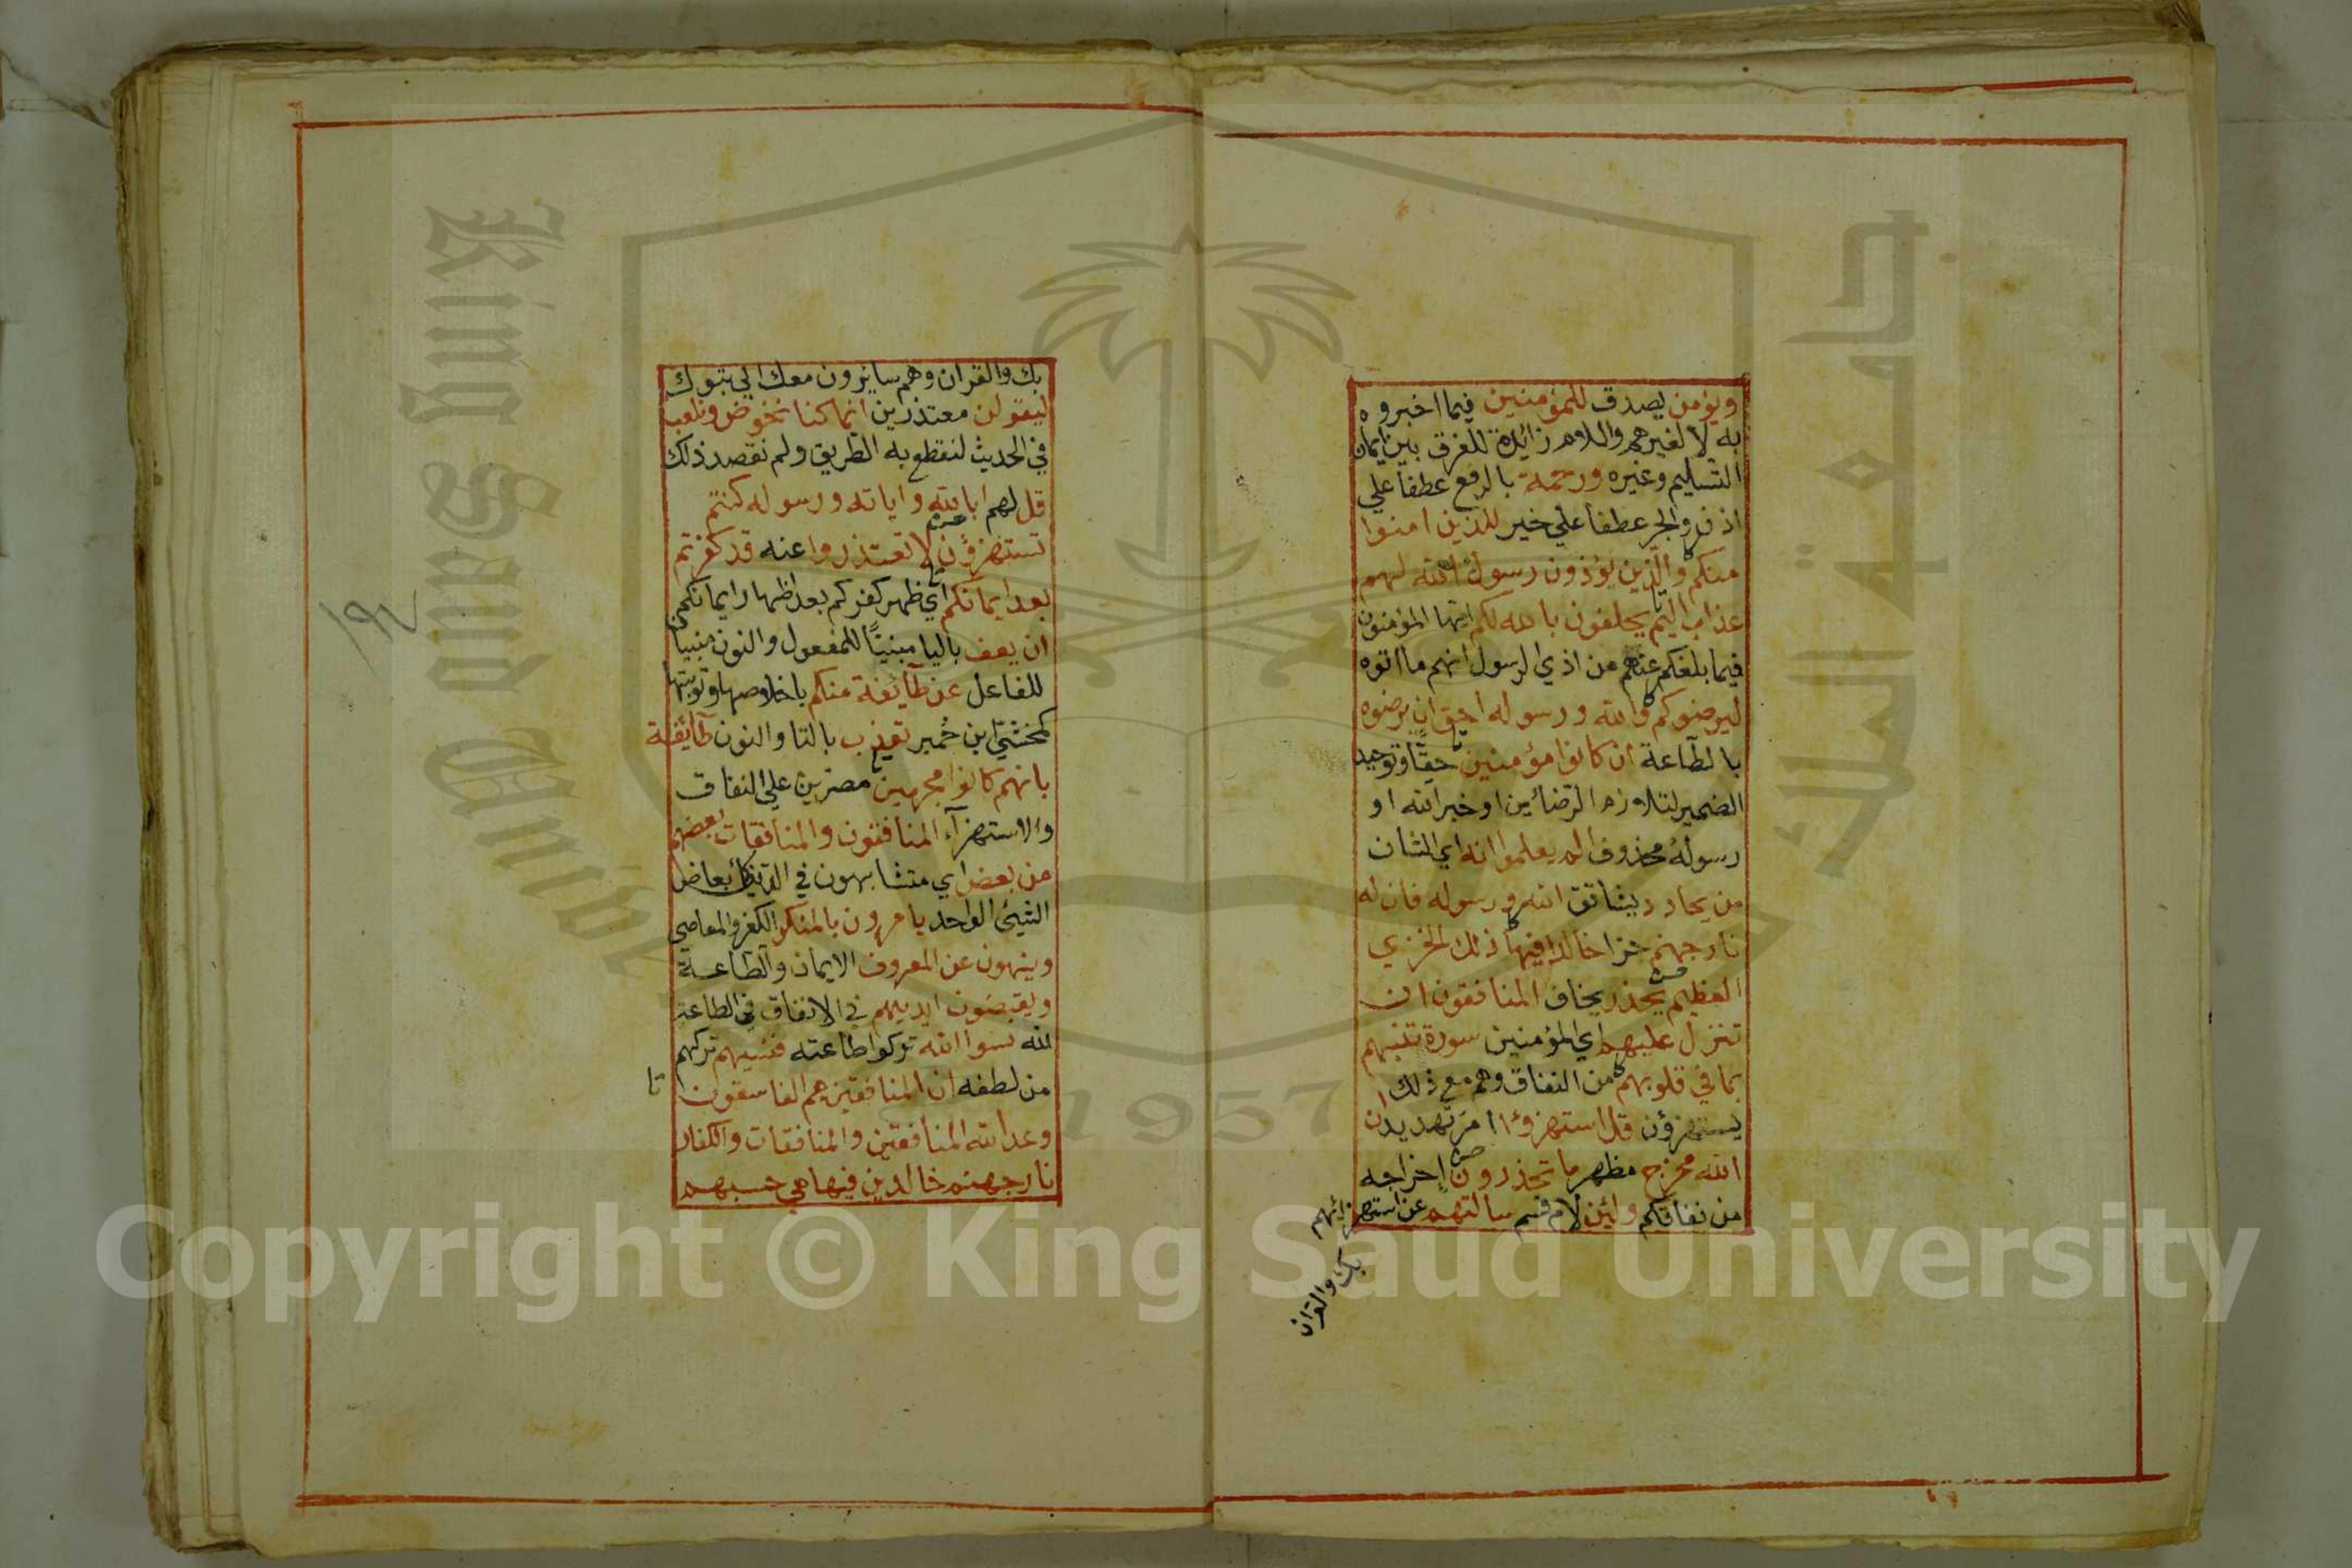 ويؤمن يصدق للمؤمنين فيما اخبروه
به لا لغيرهم واللام زائدة للفرق بين ايمان
التسليم وغيره ورحمة بالرفع عطفا علي
اذن والجر عطفا علي خير للذين امنوا
منكم والذين يؤذون رسول الله لهم
عذاب اليم يحلفون بالله لكم ايها المؤمنون
فيما بلغكم عنهم من اذي الرسول انهم ما اتوه
ليرضوكم والله ورسوله احق ان يرضوه
بالطاعة ان كانوا مؤمنين حقا وتوحيد
الضمير لتلازم الرضائين او خبر الله او
رسوله محذوف الم يعلموا انه اي الشان
من يحادد يشاقق الله ورسوله فان له
نار جهنم جزا خالدا فيها ذلك الخزي
العظيم يحذر يخاف المنافقون ان
تنزل عليهم اي المؤمنين سورة تنبئهم
بما في قلوبهم من النفاق وهم مع ذلك
يستهزؤن قل استهزؤا امر تهديد ان
الله مخرج مظهر ما تحذرون اخراجه
من نفاقكم ولئن لام قسم سالتهم عن استهزائهم
بك والقران
بك والقران وهم سائرون معك الي تبوك
ليقولن معتذرين انما كنا نخوض ونلعب
في الحديث لنقطع به الطريق ولم نقصد ذلك
قل لهم ابالله واياته ورسوله كنتم
تستهزؤن لا تعتذروا عنه قد كفرتم
بعد ايمانكم اي ظهر كفركم بعد اظهار ايمانكم
ان يعف باليا مبنيا للمفعول والنون مبنيا
للفاعل عن طآئفة منكم باخلاصها وتوبتها
كمخشي ابن حمير تعذب بالتا والنون طآئفة
بانهم كانوا مجرمين مصرين علي النفاق
والاستهزآء المنافقون والمنافقات بعضهم
من بعض اي متشابهون في الدين كابعاض
الشيئ الواحد يامرون بالمنكر الكفر والمعاصي
وينهون عن المعروف الايمان والطاعة
ويقبضون ايديهم في الانفاق في الطاعة
لله نسوا الله تركوا طاعته فنسيهم تركهم
من لطفه ان المنافقين هم الفاسقون
وعد الله المنافقين والمنافقات والكفار
نار جهنم خالدين فيها هي حسبهم
١٩٢
King Saud
جامعة الملك
1957
Copyright © King Saud University